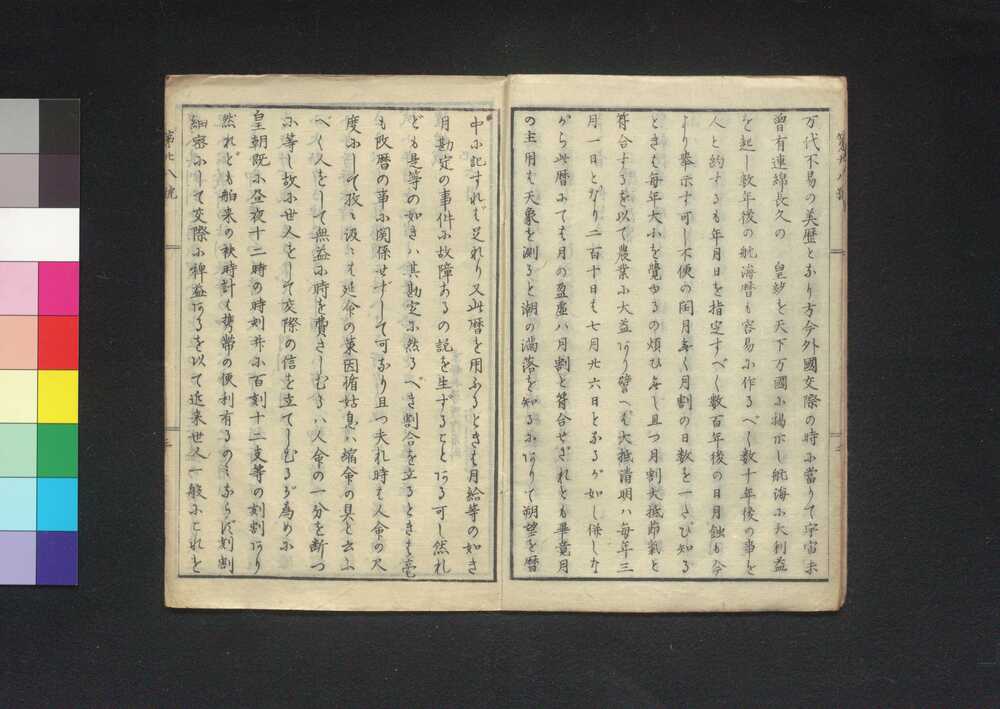 万代不易の美歴となり方今外國交際の時に當りて宇宙未
曽有連綿長久の 皇紗を天下万國に揚示し航海に大利益
を起し数年後の航海暦も容易に作るべく数十年後の事を
人と約するも年月日を指定すべく数百年後の日月蝕も今
より挙示す可し不便の閏月なく月割の日数を一さび知る
ときも毎年大小を覺ゆるの煩ひなし且つ月割大抵節氣と
符合するを以て農業に大益あり譬へば大抵清明ハ毎年三
月一日となり二百十日も七月廿六日となるが如し併しな
がら此暦にても月の盈虚ハ月割と符合せざれとも畢竟月
の主用も天象を測ると潮の満落を知るにありて朔望を暦
中に記すれば足れり又此暦を用ふるときも月給等の如き
月勘定の事件に故障あるの説を生ずることある可し然れ
ども是等の如きハ其勘定に然るべき割合を立るときも毫
も改暦の事に関係せずして可なり且つ夫れ時も人命の尺
度にして孜々汲々も延命の策因循姑息ハ縮命の具と云ふ
べく人をして無益に時を費さしむるハ人命の一分を断つ
に等し故に世人をして交際の信を立てしむるが為めに
皇朝既に昼夜十二時の時刻并に百刻十二支等の刻割あり
然れども舶来の秋時計も携帯の便利有るのみならず刻割
細密にして交際に裨益あるを以て近来世人一般にこれを
第廿八號
三